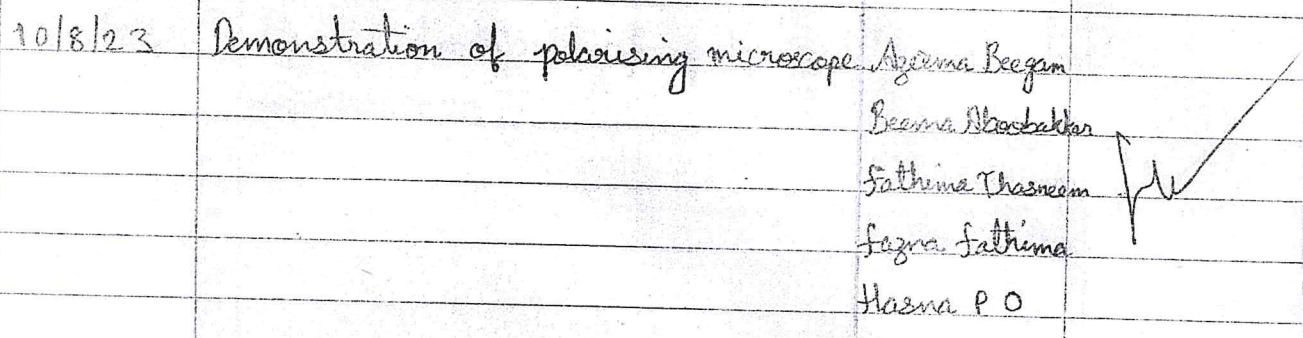 10/8/23 Demonstration of polarising microscope Azeema Beegam
Beema Aboobakker
Fathima Thasneem
Fazna Fathima
Hasna P O